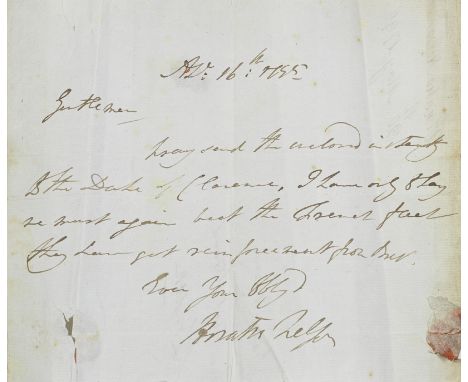 Apl: 16th: 1795
Gentlemen
pray send the enclosed instantly
to the Duke of Clarence, I have only to say
we must again beat the French fleet
they have got reinforcement from Brest.
Ever Your Oblgd
Horatio Nelson